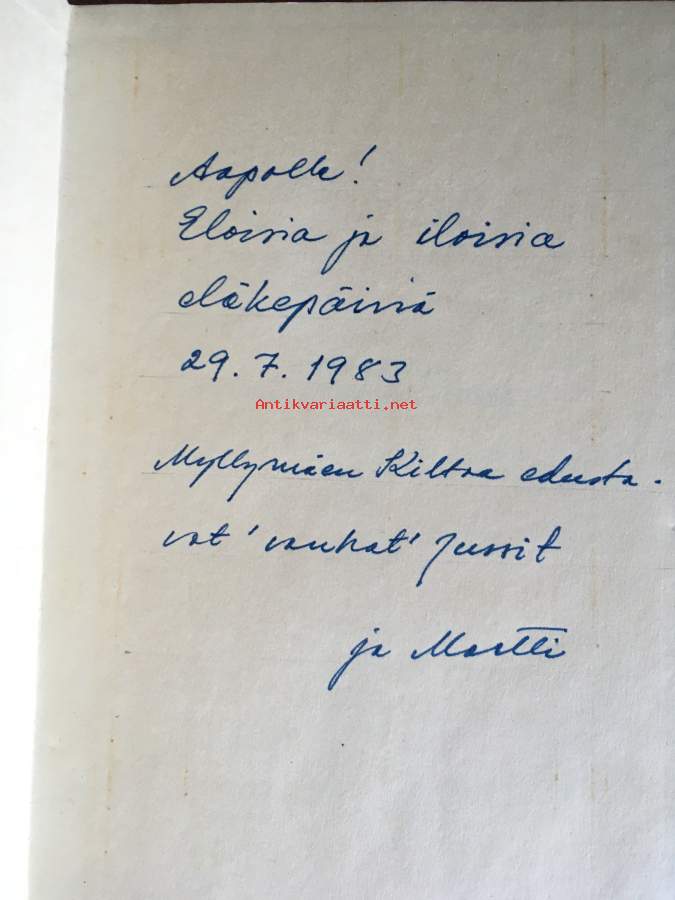 Aapolle!
Eloisia ja iloisia
eläkepäiviä
29.7.1983
Antikvariaatti.net
Myllymäen Kiltaa edusta-
vat 'vanhat' Jussit
ja Martti